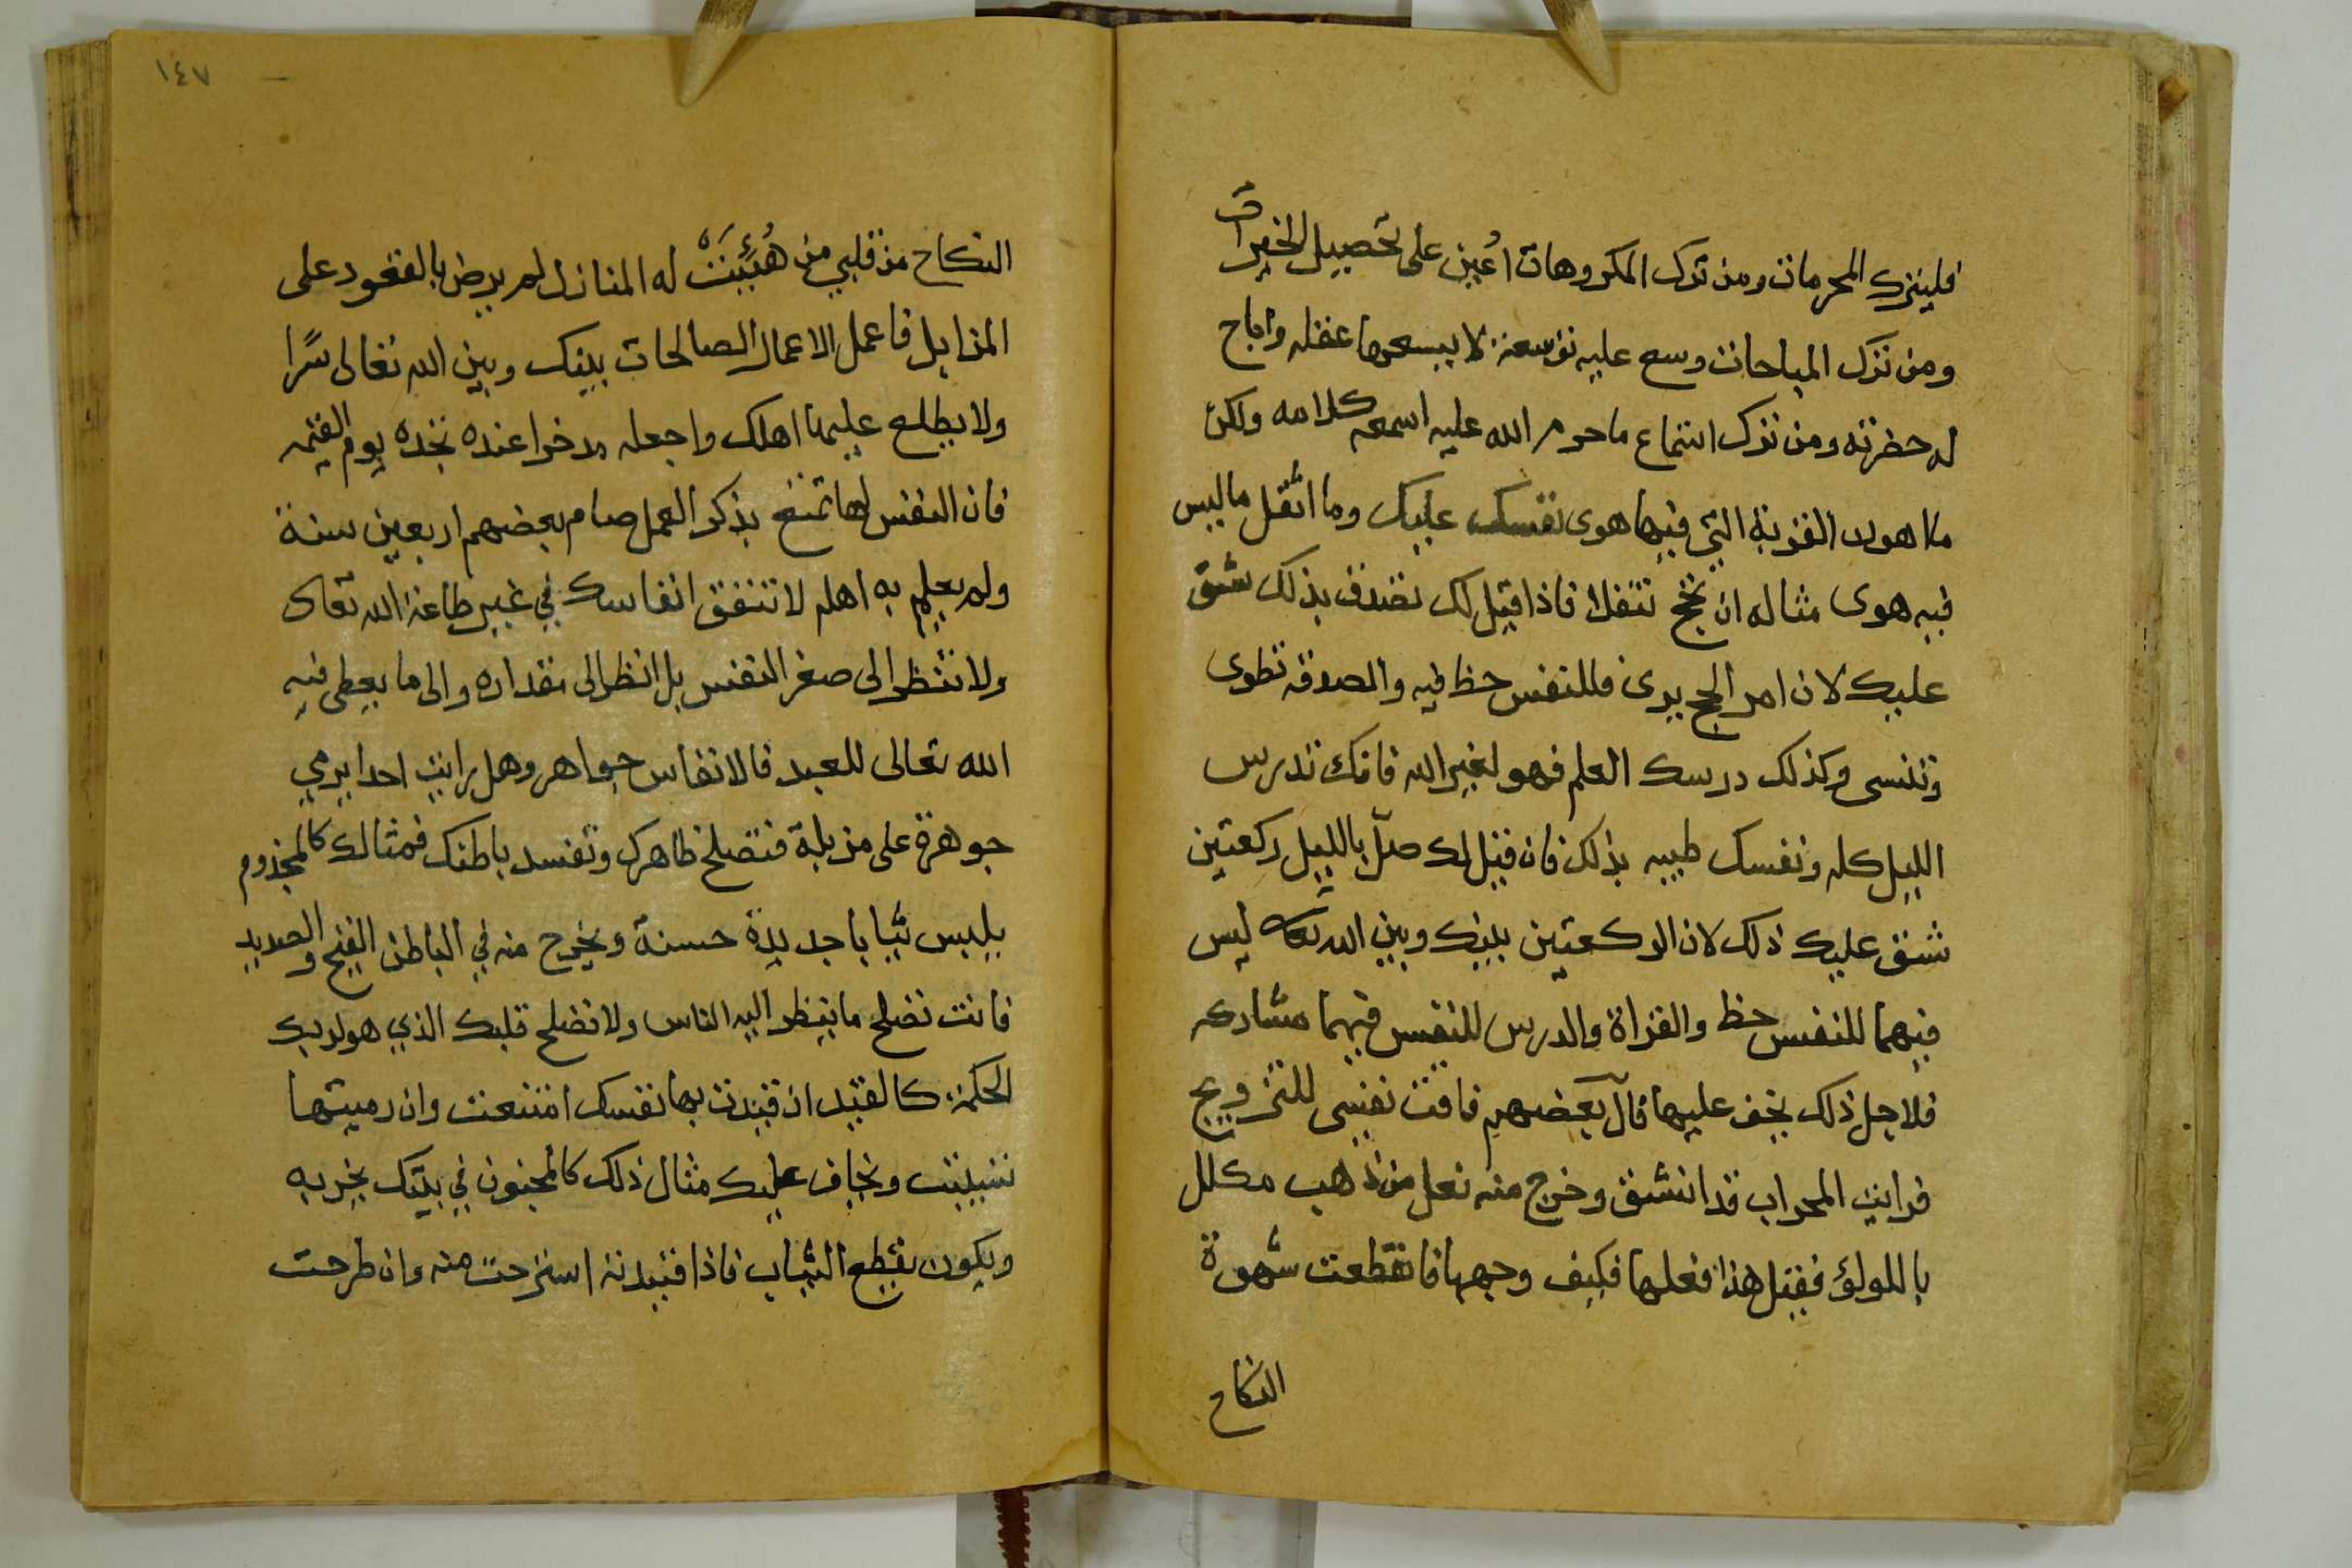 فليترك المحرمات ومن ترك المكروهات اُعين على تحصيل الخيرات
ومن ترك المباحات وسع عليه توسعة لا يسعها عقله واباح
له حضرته ومن ترك استماع ما حرم الله عليه اسمعه كلامه ولكن
ما هولد القربة التي فيها هوى نفسك عليك وما اثقل ما ليس
فيه هوى مثاله ان تحج تنفلا فاذا قيل لك تصدق بذلك شق
عليك لان امر الحج يرى فللنفس حظ فيه والصدقه تطوى
وتنسى وكذلك درسك العلم فهو لغير الله فانك تدرس
الليل كله ونفسك طيبه بذلك فان قيل لك صلّ بالليل ركعتين
شق عليك ذلك لان الركعتين بينك وبين الله تعالى ليس
فيهما للنفس حظ والقراة والدرس للنفس فيهما مشاركه
فلاجل ذلك يخف عليها قال بعضهم تاقت نفسى للتزويج
فرايت المحراب قد انشق وخرج منه نعل من ذهب مكلل
باللولؤ فقيل هذا نعلها فكيف وجهها فانقطعت شهوة
النكاح
١٤٧
النكاح من قلبي من هُيِّئَتْ له المنازل لم يرض بالقعود على
المزابل فاعمل الاعمال الصالحات بينك وبين الله تعالى سرًا
ولا يطلع عليها اهلك واجعله مدخرا عنده تجده يوم القيمه
فان النفس لها تمتع بذكر العمل صام بعضهم اربعين سنة
ولم يعلم به اهله لا تنفق انفاسك في غير طاعة الله تعالى
ولا تنظر الى صغر النفس بل انظر الى مقداره والى ما يعطى فيه
الله تعالى للعبد فالانفاس جواهر وهل رايت احدا يرمي
جوهرة على مزبلة فتصلح ظاهرك وتفسد باطنك فمثالك كالمجذوم
يلبس ثيابا جديدة حسنة ويخرج منه في الباطن القيح والصديد
فانت تصلح ما ينظر اليه الناس ولا تصلح قلبك الذي هو لربك
الحكمة كالقيد ان قيدت بها نفسك امتنعت وان رميتها
تسيبت ويخاف عليك مثال ذلك كالمجنون في بيتك يخربه
ويكون يقطع الثياب فاذا قيدته استرحت منه وان طرحت